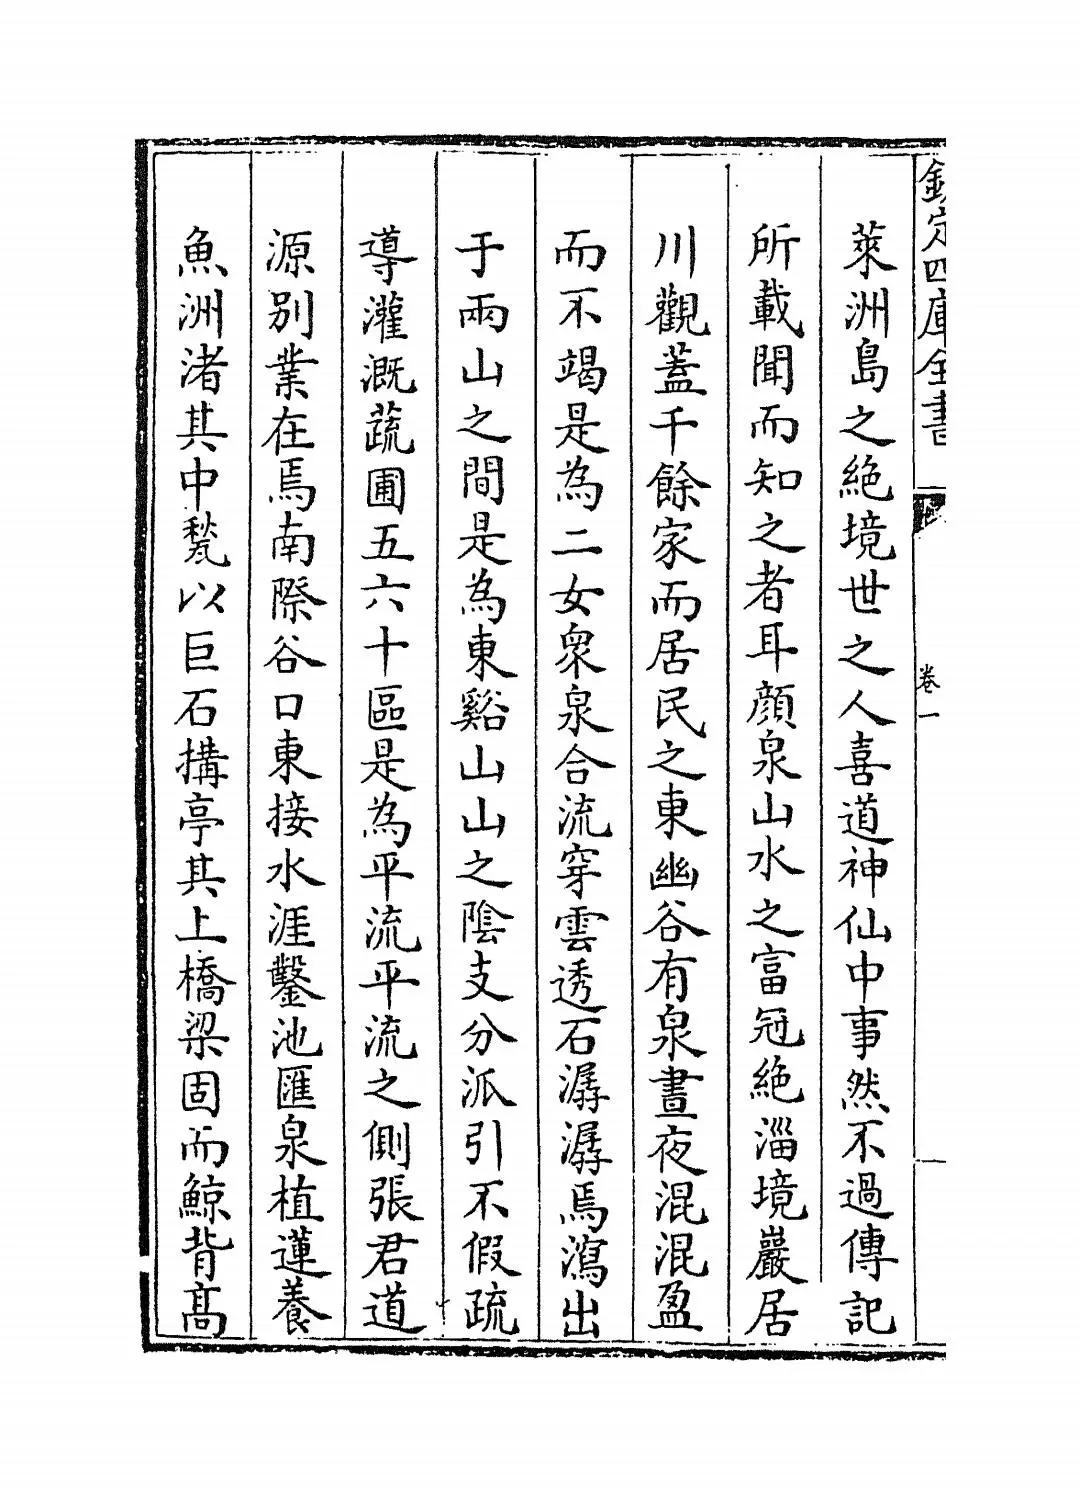 欽定四庫全書
卷一
萊洲島之絶境世之人喜道神仙中事然不過傳記
所載聞而知之者耳顔泉山水之富冠絶淄境巖居
川觀蓋千餘家而居民之東幽谷有泉晝夜混混盈
而不竭是為二女衆泉合流穿雲透石潺潺焉瀉出
于兩山之間是為東谿山山之陰支分派引不假疏
導灌溉蔬圃五六十區是為平流平流之側張君道
源別業在焉南際谷口東接水涯鑿池匯泉植蓮養
魚洲渚其中甃以巨石搆亭其上橋梁固而鯨背髙